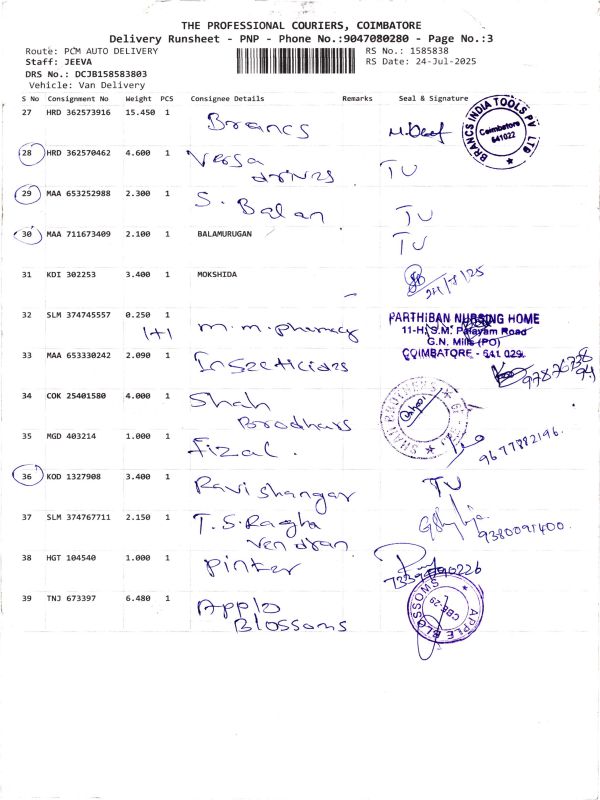 THE PROFESSIONAL COURIERS, COIMBATORE
Delivery Runsheet - PNP - Phone No.:9047080280 - Page No.:3
Route: PCM AUTO DELIVERY
RS No.: 1585838
Staff: JEEVA
RS Date: 24-Jul-2025
DRS No.: DCJB158583803
Vehicle: Van Delivery
S No Consignment No Weight PCS Consignee Details Remarks Seal & Signature
27 HRD 362573916 15.450 1 Brancs
BRANCS INDIA TOOLS PV LTD
Coimbatore
641022
28 HRD 362570462 4.600 1 Versa
drives TU
29 MAA 653252988 2.300 1 S. Balan TU
30 MAA 711673409 2.100 1 BALAMURUGAN TU
31 KDI 302253 3.400 1 MOKSHIDA
24/7/25
32 SLM 374745557 0.250 1 m.m.pharmacy
1+1
PARTHIBAN NURSING HOME
11-H, S.M. Palayam Road
G.N. Mills (PO)
COIMBATORE - 641 029.
33 MAA 653330242 2.090 1 Insecticides
34 COK 25401580 4.000 1 Shah
Brodhars
35 MGD 403214 1.000 1 Fizal.
9677882196.
36 KOD 1327908 3.400 1 Ravi shangar TU
37 SLM 374767711 2.150 1 T.S.Ragha
vendran
9380091400.
38 HGT 104540 1.000 1 pinter
39 TNJ 673397 6.480 1 Applo
Blossoms
APPLE BLOSSOMS
CBE-29